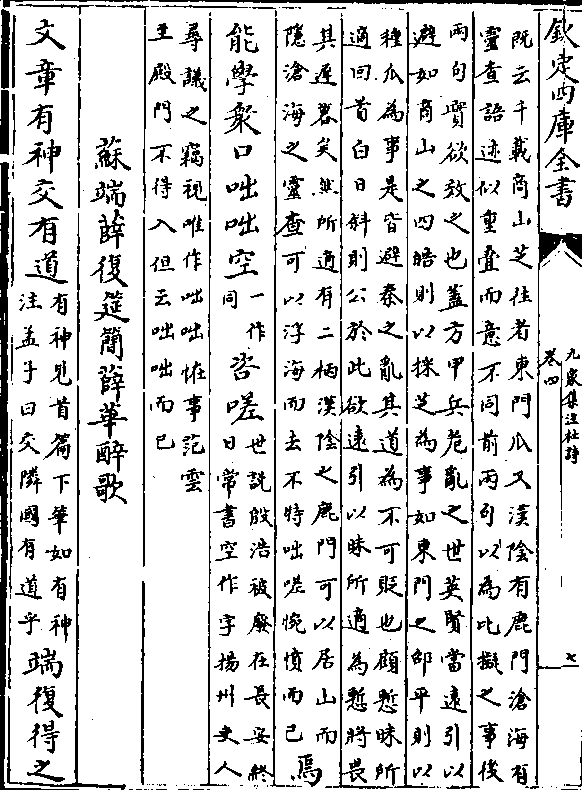 欽定四庫全書
九家集注杜詩
卷四
七
既云千載商山芝往者東門瓜又漢陰有鹿門滄海有
靈查語迹似重疊而意不同前兩句以為比擬之事後
兩句實欲效之也蓋方甲兵危亂之世英賢當遠引以
避如商山之四皓則以採芝為事如東門之邵平則以
種瓜為事是皆避秦之亂其道為不可貶也顧慙昧所
適回首白日斜則公於此欲遠引以昧所適為慙將畏
其遲暮矣然所適有二柄漢陰之鹿門可以居山而
隱滄海之靈查可以浮海而去不特咄嗟惋憤而已
焉
能學衆口咄咄空
一作
同
咨嗟
世說殷浩被廢在長安終
日常書空作字揚州吏人
尋議之竊視唯作咄咄怪事記雲
至殿門不得入但云咄咄而已
蘇端薛復筵簡薛華醉歌
文章有神交有道
有神見首篇下筆如有神
注孟子曰交隣國有道乎
端復得之